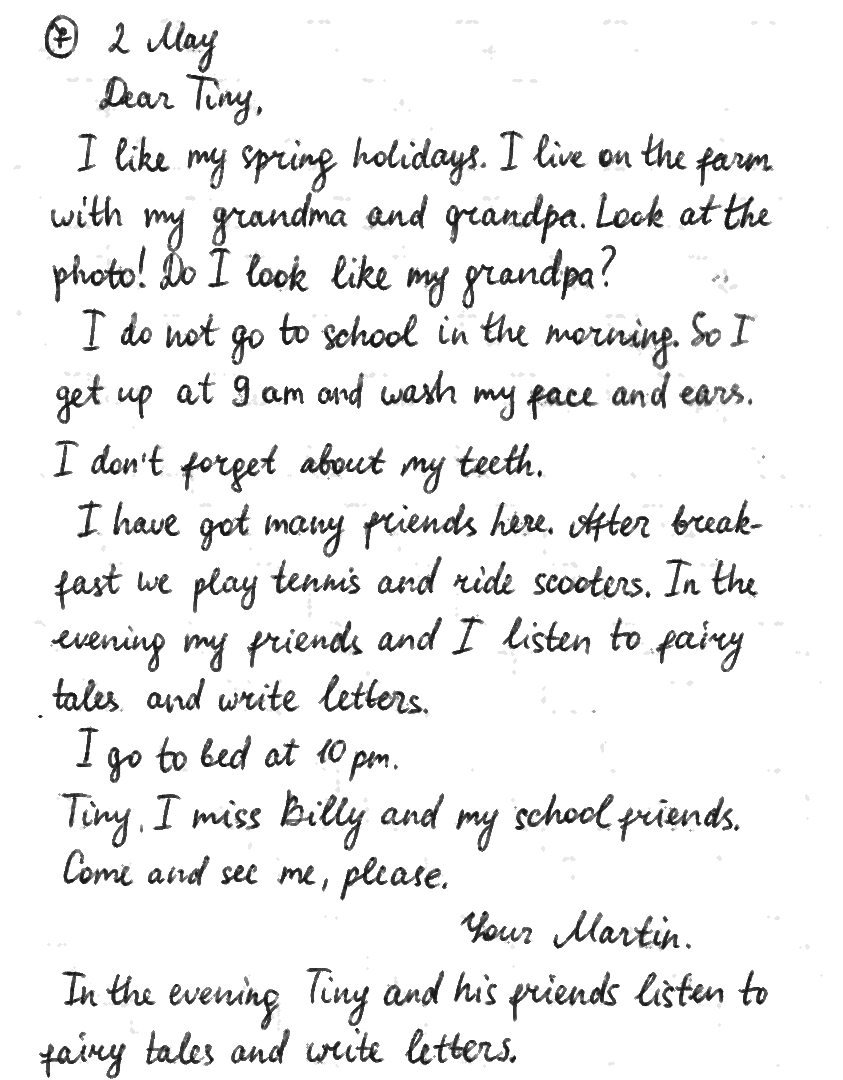 2 May
Dear Tiny,
I like my spring holidays. I live on the farm
with my grandma and grandpa. Look at the
photo! Do I look like my grandpa?
I do not go to school in the morning. So I
get up at 9 am and wash my face and ears.
I don't forget about my teeth.
I have got many friends here. After break-
fast we play tennis and ride scooters. In the
evening my friends and I listen to fairy
tales and write letters.
I go to bed at 10 pm.
Tiny, I miss Billy and my school friends.
Come and see me, please.
Your Martin.
In the evening Tiny and his friends listen to
fairy tales and write letters.